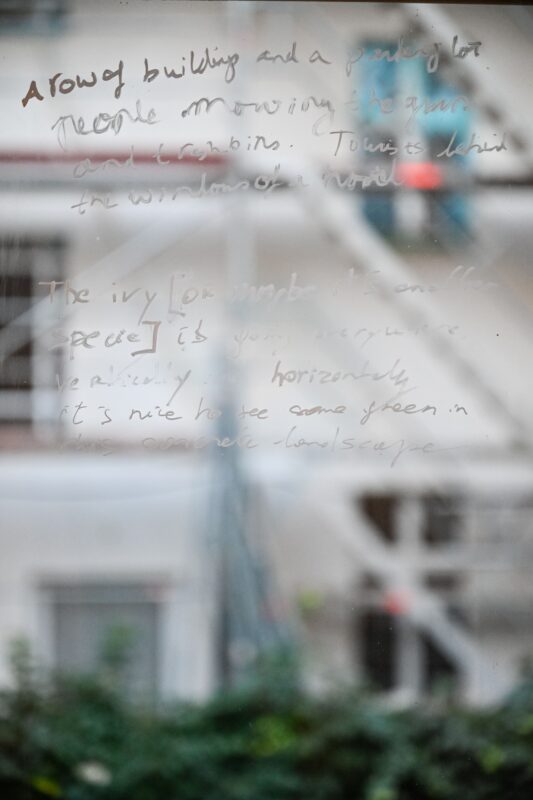 A row of buildings and a parking lot
people mowing the grass
and trashbins. Tourists behind
the windows of a hotel
The ivy [or maybe it's another
specie] is going everywhere
vertically horizontally
it's nice to see some green in
this concrete landscape